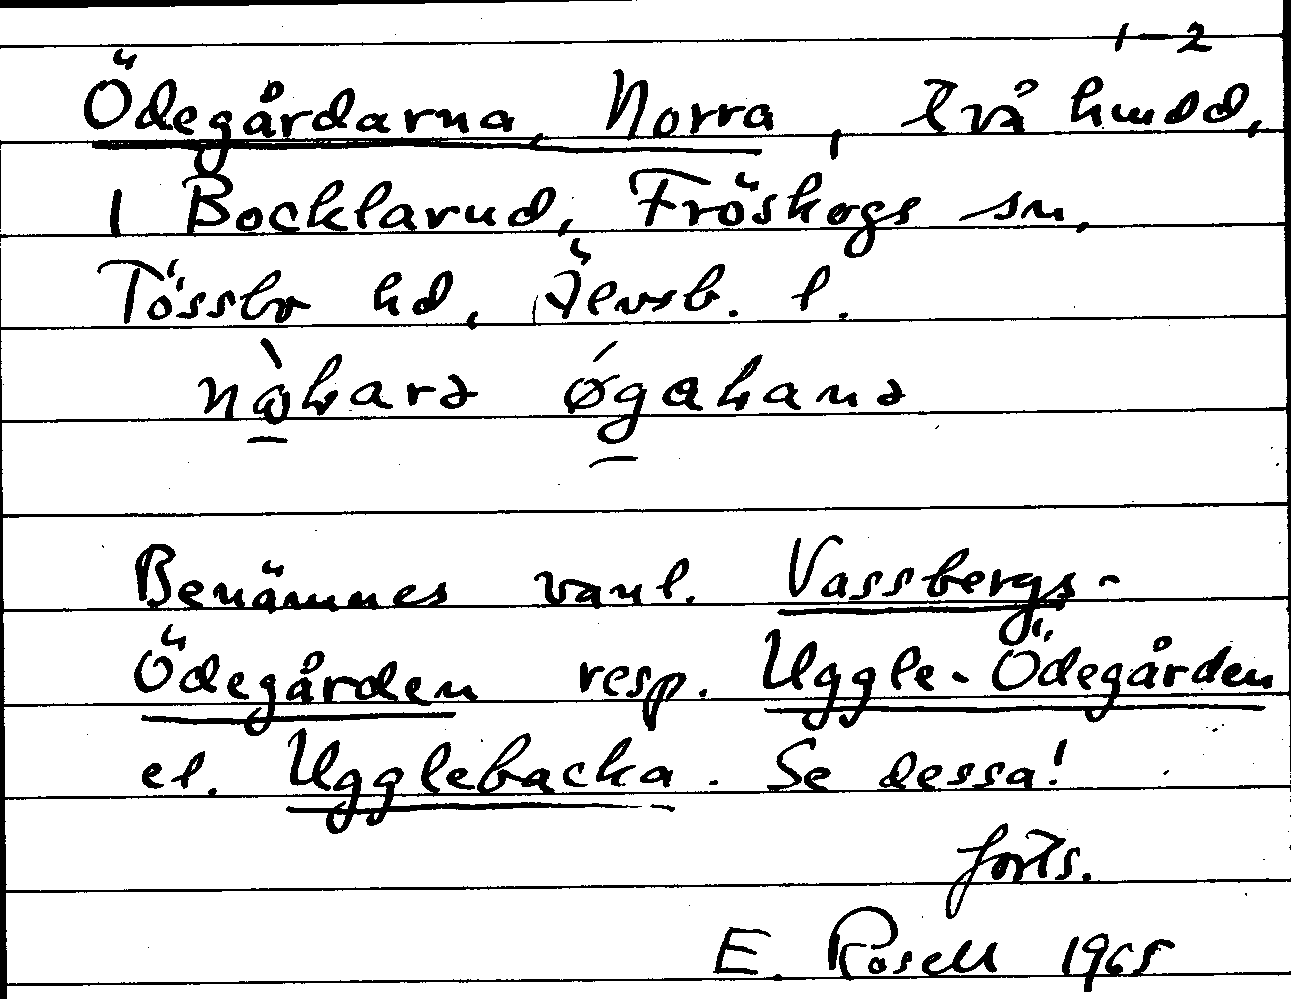 1–2
Ödegårdarna, Norra, två hmdd,
1 Bocklarud, Fröskogs sn,
Tössbo hd, Älvsb. l.
Benämnes vanl. Vassbergs-
Ödegården resp. Uggle-Ödegården
el. Ugglebacka. Se dessa!
forts.
E. Rosell 1965